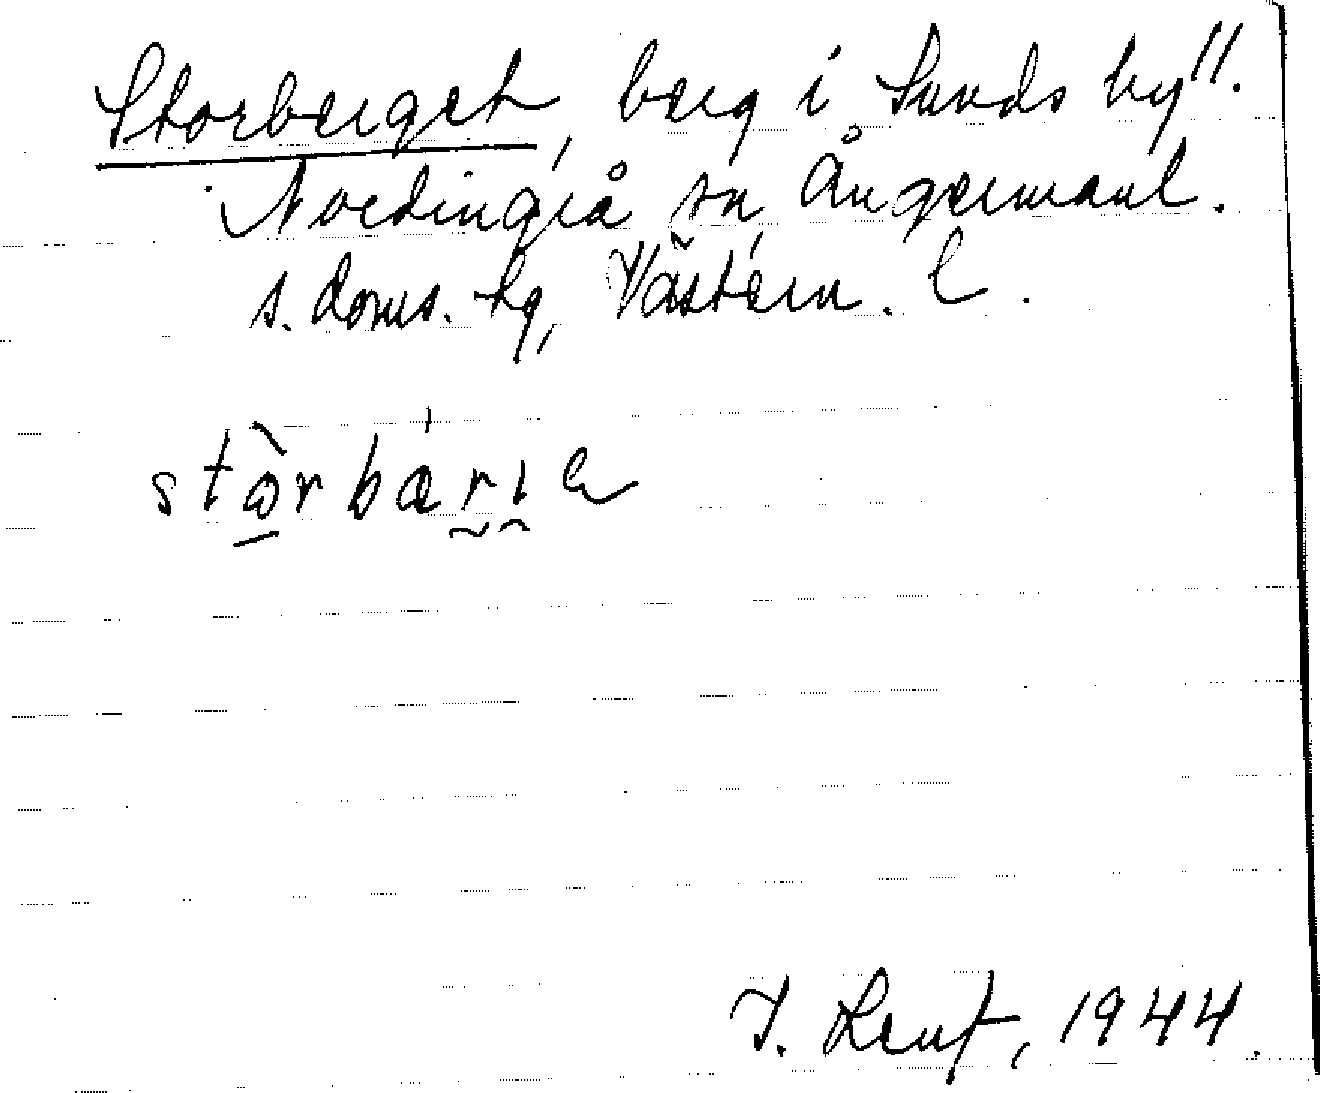 Storberget, berg i Sunds by".
Nordingrå sn Ångermanl.
s. doms. tg, Västern. l.
stòrbærıe
1944.